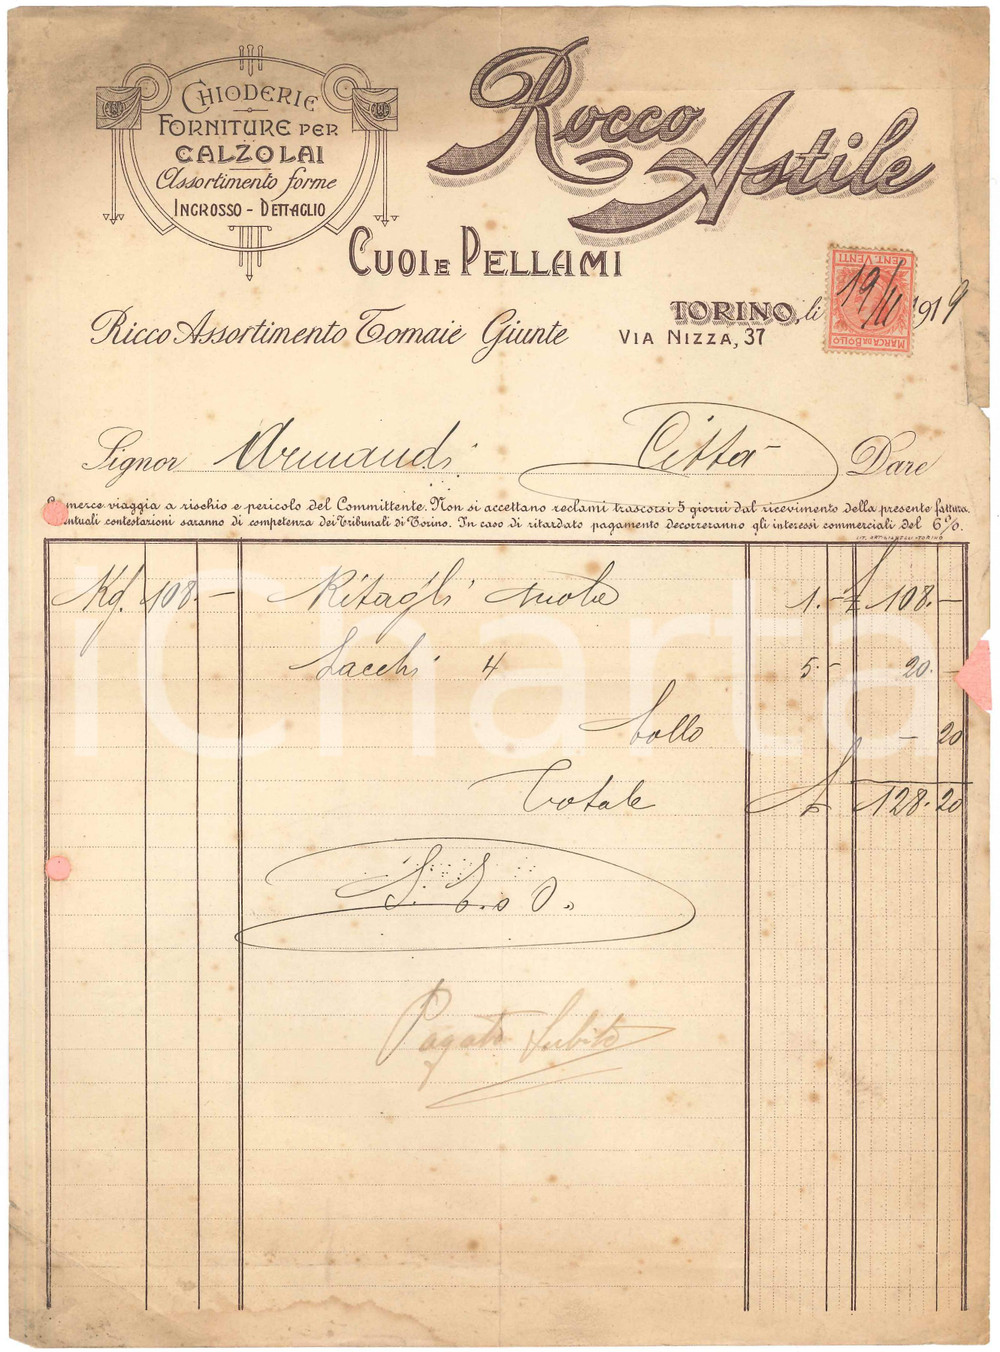 CHIODERIE
FORNITURE PER
CALZOLAI
Assortimento forme
INGROSSO - DETTAGLIO
Rocco Astile
CUOI E PELLAMI
Ricco Assortimento Tomaie Giunte
TORINO, li 19/11 1919
VIA NIZZA, 37
CENT. VENTI
MARCA DA BOLLO
Signor Armandi Città Dare
merce viaggia a rischio e pericolo del Committente. Non si accettano reclami trascorsi 5 giorni dal ricevimento della presente fattura.
contestazioni saranno di competenza dei Tribunali di Torino. In caso di ritardato pagamento decorreranno gli interessi commerciali del 6%.
LIT. ARTIGIANELLI - TORINO
Kg. 108.- Ritagli suola 1.- £ 108.-
Sacchi 4 5.- 20.-
bollo - 20
Totale £ 128.20
S. E. o O.
Pagato Subito
iCharta